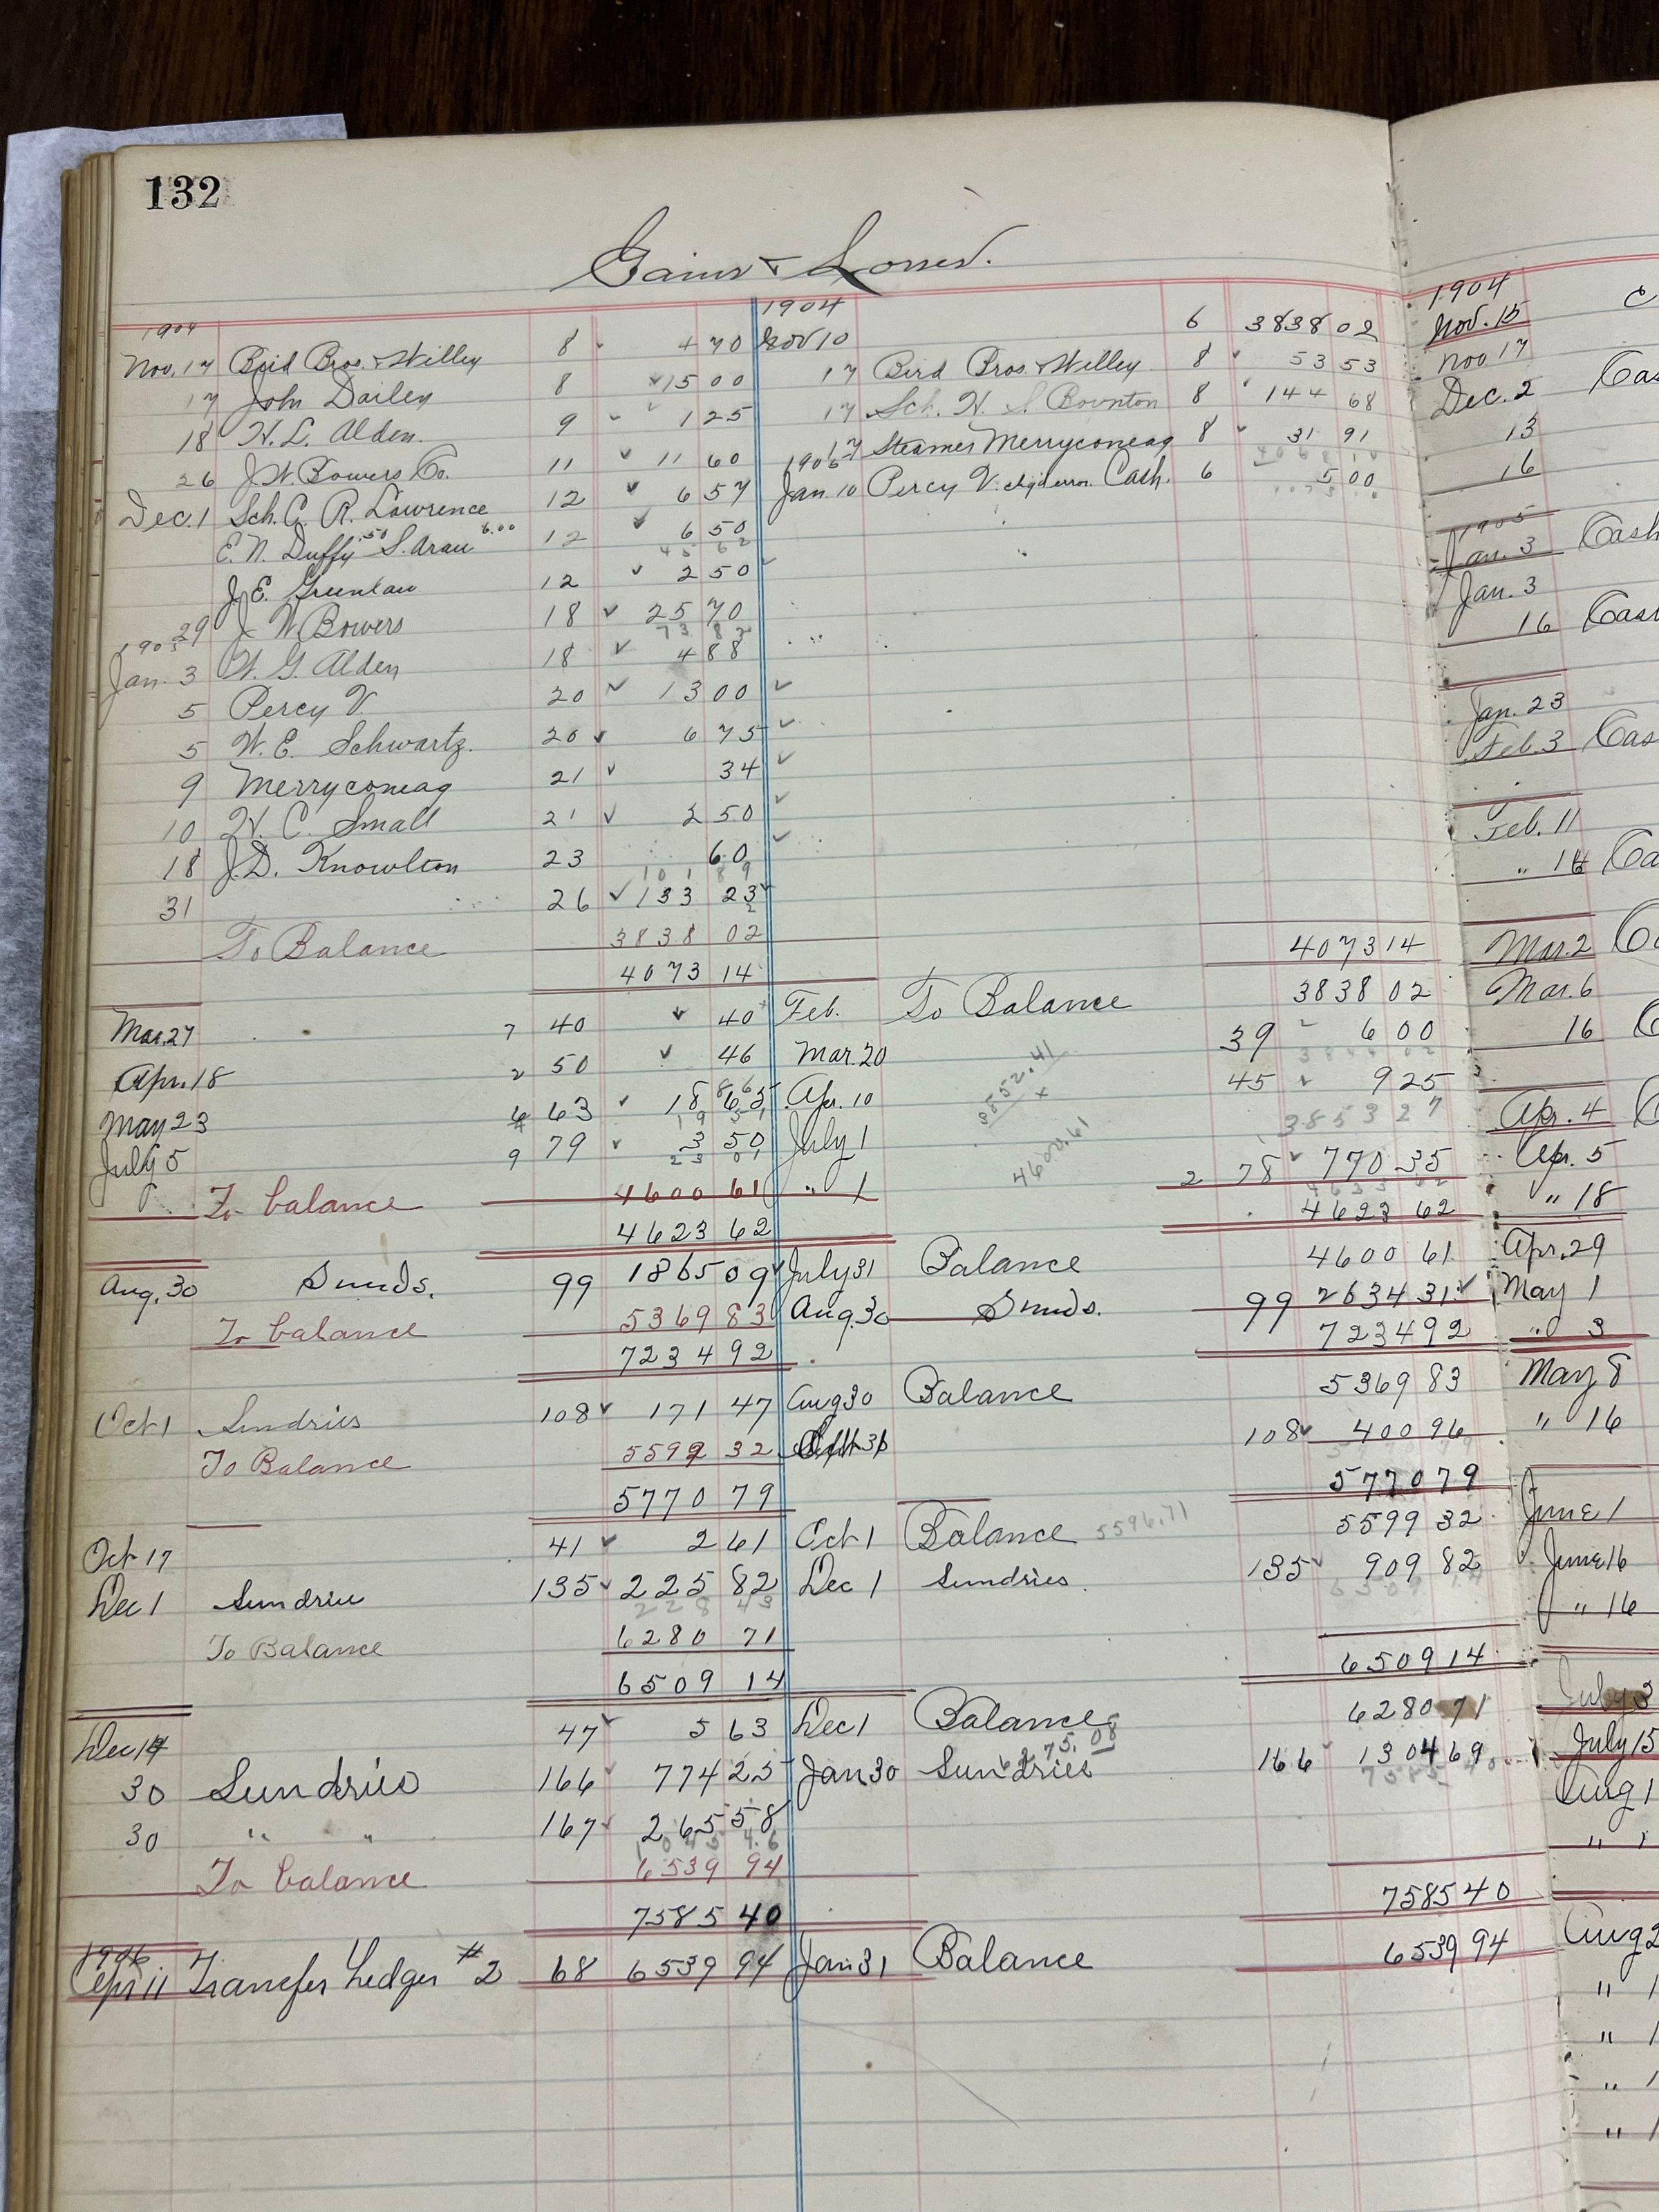 132
Gains & Losses.
1904
Nov. 17 Bird Bros. & Willey 8 4 70
17 John Dailey 8 15 00
18 H. L. Alden. 9 1 25
26 J. W. Bowers Co. 11 11 60
Dec. 1 Sch. C. R. Lawrence 12 6 57
E. N. Duffy .50 S. Arau 6.00 12 6 50
45 62
J. E. Greenlaw 12 2 50
29 J. W. Bowers 18 25 70
73 82
1905
Jan. 3 W. G. Alden 18 4 88
5 Percy V. 20 13 00
5 W. E. Schwartz. 20 6 75
9 Merryconeag 21 34
10 H. C. Small 21 2 50
18 J. D. Knowlton 23 60
101 89
31 26 133 23
To Balance 3838 02
4073 14
Mar. 27 7 40 40
Apr. 18 2 50 46
May 23 4 63 18 65
19 51
July 5 9 79 3 50
23 01
To balance 4600 61
4623 62
Aug. 30 Sunds. 99 1865 09
To balance 5369 83
7234 92
Oct 1 Sundries 108 171 47
To Balance 5599 32
5770 79
Oct 17 41 2 61
Dec 1 Sundries 135 225 82
228 43
To Balance 6280 71
6509 14
Dec 14 47 5 63
30 Sundries 166 774 25
30 " " 167 265 58
1045 46
To balance 6539 94
7585 40
1906
Apr 11 Transfer Ledger #2 68 6539 94
1904
Nov 10 6 3838 02
17 Bird Bros. & Willey 8 53 53
17 Sch. H. S. Boynton 8 144 68
17 Steamer Merryconeag 8 31 91
1905
Jan. 10 Percy V. Cash. 6 5 00
4073 14
Feb. To Balance 3838 02
Mar. 20 39 6 00
3844 02
Apr. 10 45 9 25
3853 27
3852.41
4600.61
July 1 2 78 770 35
4623 62
" 1 4623 62
July 31 Balance 4600 61
Aug. 30 Sunds. 99 2634 31
7234 92
Aug 30 Balance 5369 83
Sept 30 108 400 96
5770 79
Oct 1 Balance 5596.71 5599 32
Dec 1 Sundries. 135 909 82
6509 14
6509 14
Dec 1 Balance 6280 71
6275.08
Jan 30 Sundries 166 1304 69
7585 40
7585 40
Jan 31 Balance 6539 94
1904
Nov. 15
Nov. 17
Dec. 2
13
16
1905
Jan. 3 Cash
Jan. 3
16
Jan. 23
Feb. 3
Feb. 11
" 14
Mar. 2
Mar. 6
16
Apr. 4
Apr. 5
" 18
Apr. 29
May 1
" 3
May 8
" 16
June 1
June 16
" 16
July 3
July 15
Aug 1
" 1
Aug 2
" 1
" 1
" 1
" 1